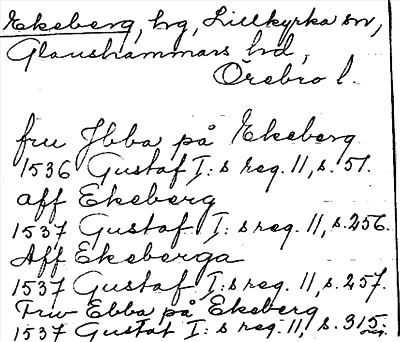 Ekeberg, hg, Lillkyrka sn,
Glanshammars hd,
Örebro l.
fru Jbba på Ekeberg
1536 Gustaf I: s reg. 11, s. 51.
aff Ekeberg
1537 Gustaf I: s reg. 11, s. 256.
Aff Ekeberga
1537 Gustaf I: s reg. 11, s. 257.
Frw Ebba på Ekeberg
1537 Gustaf I: s reg. 11, s. 315